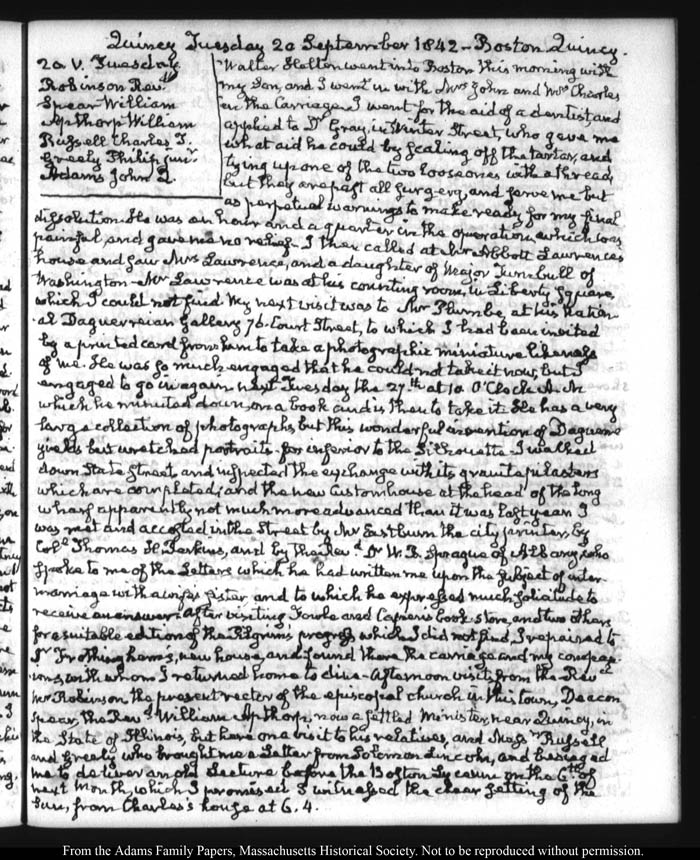 Quincy Tuesday 20 September 1842 - Boston Quincy.
20. V. Tuesday
Robinson Revd
Spear William
Apthorp William
Russell Charles T.
Greely Philip jun.
Adams John Q.
Walter Hellen went into Boston this morning with
my Son, and I went in with Mrs John and Mrs Charles
in the Carriage. I went for the aid of a dentist and
applied to Dr Gray, in Winter Street, who gave me
what aid he could by scaling off the tartar, and
tying up one of the two loose ones with a thread,
but they are past all surgery, and serve me but
as perpetual warnings to make ready for my final
dissolution. He was an hour and a quarter in the operation, which was
painful, and gave me no relief. I then called at Mr Abbott Lawrence's
house and saw Mrs Lawrence, and a daughter of Major Turnbull of
Washington. Mr Lawrence was at his counting room, in Liberty Square
which I could not find. My next visit was to Mr Plumbe, at his Nation-
al Daguerreian Gallery 76. Court Street, to which I had been invited
by a printed card from him to take a photographic miniature likeness
of me. He was so much engaged that he could not take it now, but I
engaged to go in again next Tuesday the 27th at 10 O'Clock A.M.
which he minuted down, on a book and is then to take it. He has a very
large collection of photographs, but this wonderful invention of Daguerre
yields but wretched portraits - far inferior to the Silhouette. I walked
down State Street, and inspected the exchange with its granite pilasters
which are completed; and the new Customhouse at the head of the long
wharf apparently not much more advanced than it was last year. I
was met and accosted in the Street by Mr Eastburn the city printer, by
Coll Thomas H. Perkins, and by the Revd Dr W. B. Sprague of Albany, who
spoke to me of the Letters which he had written me upon the subject of inter-
marriage with a wife's sister and to which he expressed much solicitude to
receive an answer. After visiting Fowle and Capen's book store, and two others
for a suitable edition of the Pilgrims progress which I did not find, I repaired to
Dr Frothingham's, new house, and found there the carriage and my compan-
ions, with whom I returned home to dine. Afternoon visits from the Revd
Mr Robinson the present rector of the episcopal church in this town, Deacon
Spear, the Revd William Apthorp, now a settled Minister, near Quincy, in
the State of Illinois, but here on a visit to his relatives, and Messrs Russell
and Greely who brought me a Letter from Solomon Lincoln, and besieged
me to deliver an old Lecture before the Boston Lyceum on the 6th of
next Month, which I promised. I witnessed the clear setting of the
Sun, from Charles's house at 6. 4.
From the Adams Family Papers, Massachusetts Historical Society. Not to be reproduced without permission.